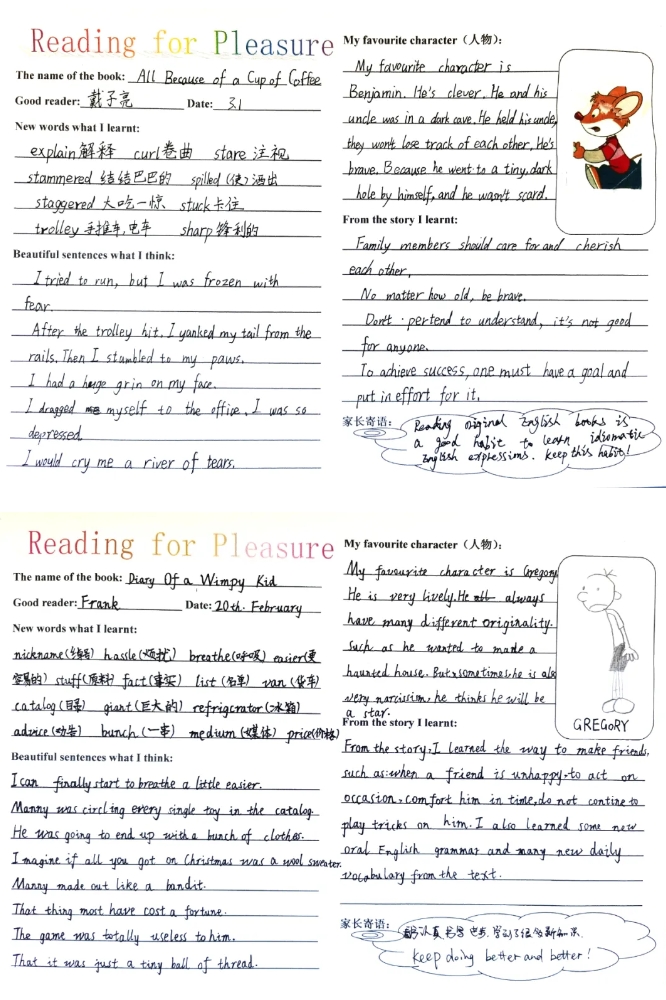 Reading for Pleasure
The name of the book: All Because of a Cup of Coffee
Good reader: 戴子亮 Date: 3.1
New words what I learnt:
explain 解释 curl 卷曲 stare 注视
stammered 结结巴巴的 spilled (使)洒出
staggered 大吃一惊 stuck 卡住
trolley 手推车,电车 sharp 锋利的
Beautiful sentences what I think:
I tried to run, but I was frozen with
fear.
After the trolley hit. I yanked my tail from the
rails. Then I stumbled to my paws.
I had a huge grin on my face.
I dragged myself to the office. I was so
depressed.
I would cry me a river of tears.
My favourite character（人物）:
My favourite character is
Benjamin. He's clever. He and his
uncle was in a dark cave. He held his uncle,
they won't lose track of each other. He's
brave. Because he went to a tiny, dark
hole by himself, and he wasn't scard.
From the story I learnt:
Family members should care for and cherish
each other.
No matter how old, be brave.
Don't pertend to understand, it's not good
for anyone.
To achieve success, one must have a goal and
put in effort for it.
家长寄语:
Reading original English books is
a good habit to learn idiomatic
English expressions. Keep this habit!
Reading for Pleasure
The name of the book: Diary Of a Wimpy Kid
Good reader: Frank Date: 20th. February
New words what I learnt:
nickname(绰号) hassle(烦扰) breathe(呼吸) easier(更
容易的) stuff(原料) fact(事实) list (名单) van (货车)
catalog (目录) giant (巨大的) refrigerator (冰箱)
advice (劝告) bunch (一串) medium (媒体) price(价格)
Beautiful sentences what I think:
I can finally start to breathe a little easier.
Manny was circling every single toy in the catalog.
He was going to end up with a bunch of clothes.
Imagine if all you got on Christmas was a wool sweater.
Manny made out like a bandit.
That thing most have cost a fortune.
The game was totally useless to him.
That it was just a tiny ball of thread.
My favourite character（人物）:
My favourite character is Gregory.
He is very lively. He always
have many different originality.
Such as he wanted to made a
haunted house. But sometimes, he is also
very narcissism, he thinks he will be
a star.
GREGORY
From the story I learnt:
From the story, I learned the way to make friends,
such as: when a friend is unhappy, to act on
occasion, comfort him in time, do not contine to
play tricks on him. I also learned some new
oral English grammar and many new daily
vocabulary from the text.
家长寄语:
认真书写 学到了很多新知识
keep doing better and better!